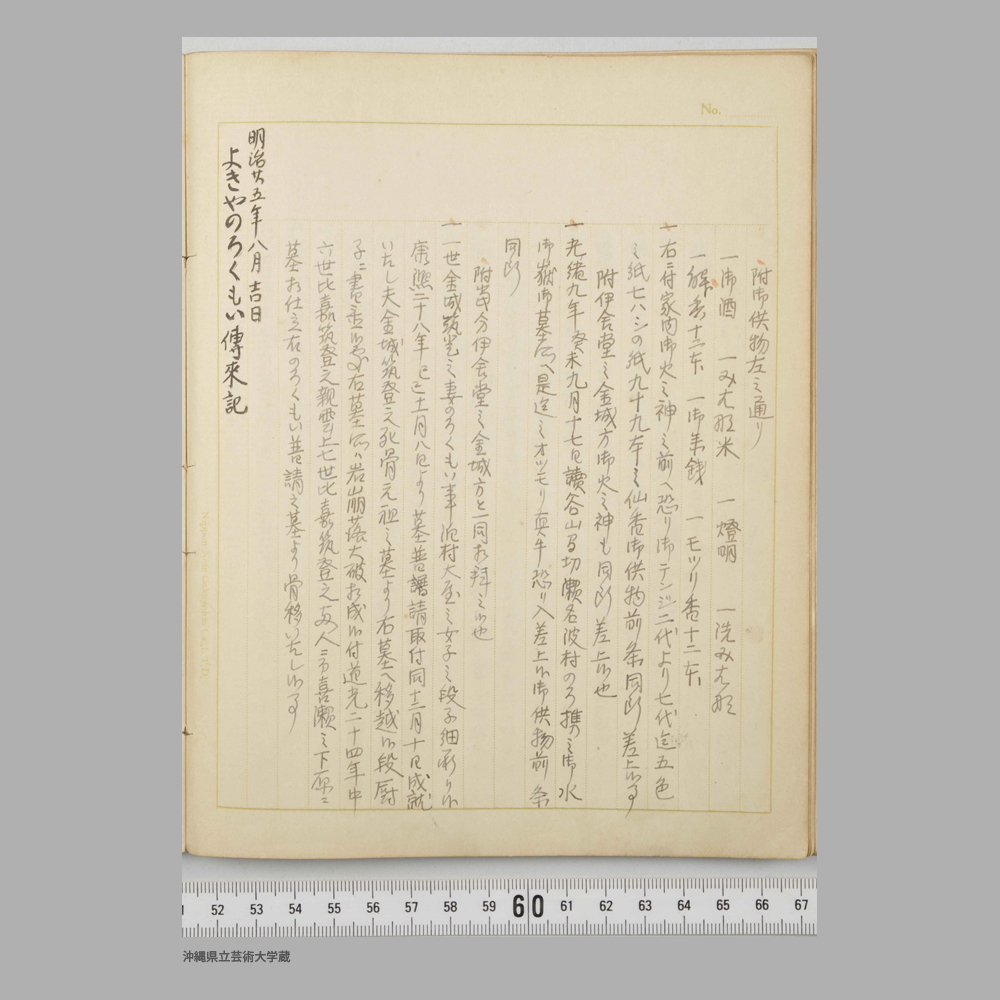 No.
附御供物左之通り
一御酒 一みはな米 一燈明 一洗みはな
一線香十二本 一御第銭 一モツリ香十二本
一右ニ付家内御火之神之前ヘ恐り御テンジ二代より七代迄五色
之紙七ハシの紙九十九本之仙香御供物前条同断差上候事
附伊舎堂之金城方御火之神も同断差上候也
一光緒九年癸未九月十七日讀谷山間切瀬名波村のろ携之御水
御嶽御墓所ヘ是迄之オツモリ真牛恐り入差上候御供物前条
同断
附当分伊舎堂之金城方と一同お拝之候也
一一世金城筑登之妻のろくもい事泊村大屋之女子之段子細承り候
康熙二十八年己巳十一月八日より墓普請取付同十二月十日成就
いたし夫金城筑登之死骨元祖之墓より右墓ヘ移越候段厨
子ニ書置候処右墓所ハ岩山崩落大破相成候付道光二十四年中
六世比嘉筑登之親雲上七世比嘉筑登之両人ニ而喜瀬之下原ニ
墓お仕立右のろくもい普請之墓より骨移いたし候事
明治廿五年八月吉日
よきやのろくもい傳來記
51 52 53 54 55 56 57 58 59 60 61 62 63 64 65 66 67
沖縄県立芸術大学蔵